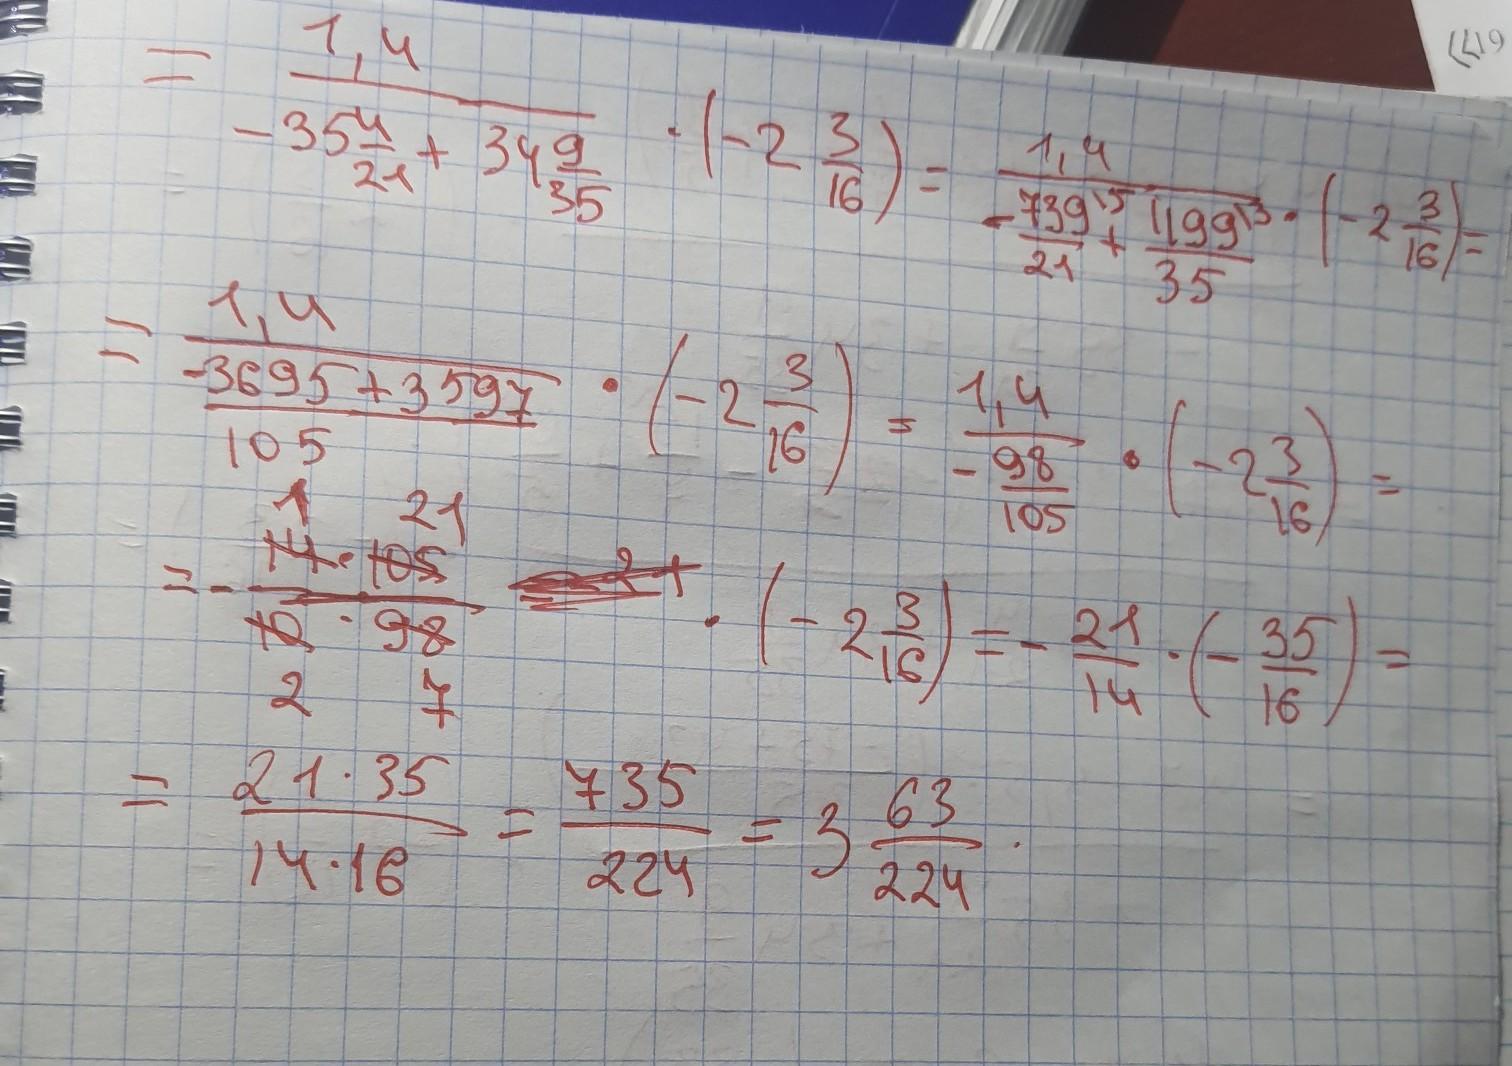 = 1,4 / (-35 4/21 + 34 9/35) · (-2 3/16) = 1,4 / (-739\5/21 + 1199\3/35) · (-2 3/16) =
= 1,4 / ((-3695+3597)/105) · (-2 3/16) = 1,4 / (-98/105) · (-2 3/16) =
1 21
= - 14·105 / 10·98 · (-2 3/16) = - 21/14 · (- 35/16) =
2 7
= 21·35 / 14·16 = 735/224 = 3 63/224 .